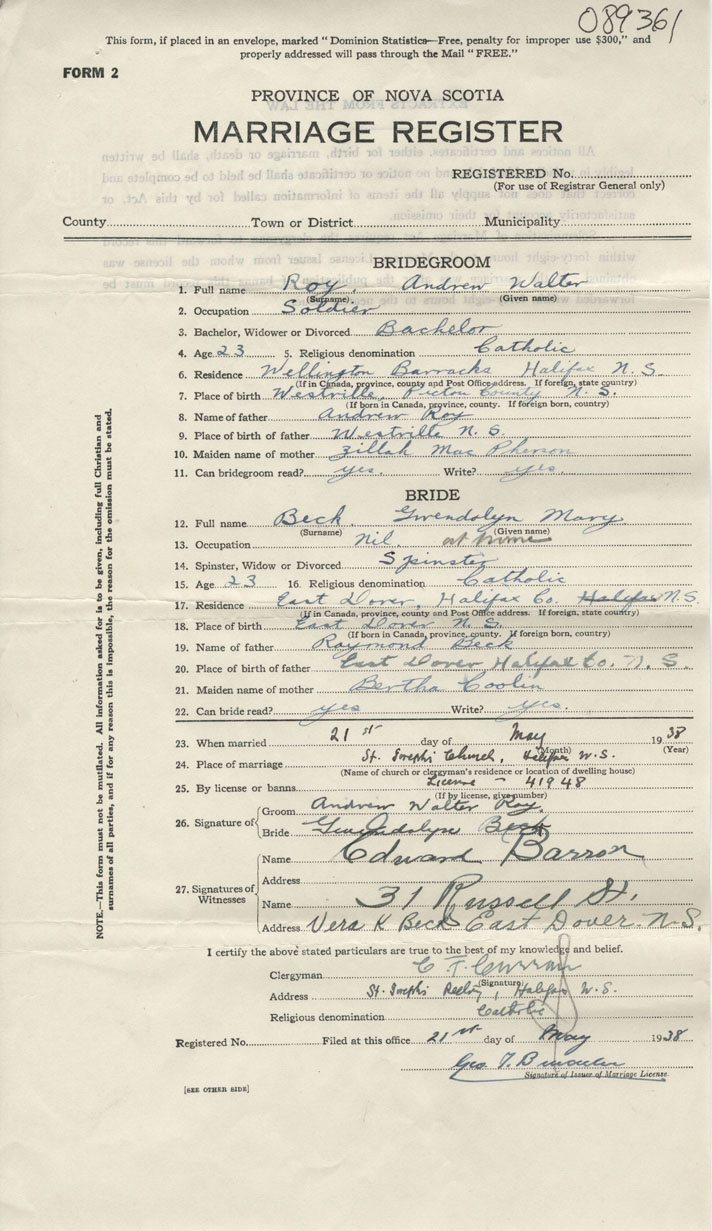 089361
This form, if placed in an envelope, marked "Dominion Statistics—Free, penalty for improper use $300," and
properly addressed will pass through the Mail "FREE."
FORM 2
PROVINCE OF NOVA SCOTIA
MARRIAGE REGISTER
REGISTERED No.
(For use of Registrar General only)
County Town or District Municipality
BRIDEGROOM
1. Full name Roy, Andrew Walter
(Surname) (Given name)
2. Occupation Soldier
3. Bachelor, Widower or Divorced Bachelor
4. Age 23 5. Religious denomination Catholic
6. Residence Wellington Barracks Halifax N. S.
(If in Canada, province, county and Post Office address. If foreign, state country)
7. Place of birth Westville, Pictou County N. S.
(If born in Canada, province, county. If foreign born, country)
8. Name of father Andrew Roy
9. Place of father Westville N. S.
10. Maiden name of mother Zillah Mac Pherson
11. Can bridegroom read? yes. Write? yes.
BRIDE
12. Full name Beck, Gwendolyn Mary
(Surname) (Given name)
13. Occupation Nil. at home
14. Spinster, Widow or Divorced Spinster
15. Age 23 16. Religious denomination Catholic
17. Residence East Dover, Halifax Co. Halifax N.S.
(If in Canada, province, county and Post Office address. If foreign, state country)
18. Place of birth East Dover N. S.
(If born in Canada, province, county. If foreign born, country)
19. Name of father Raymond Beck
20. Place of birth of father East Dover Halifax Co. N. S.
21. Maiden name of mother Bertha Coolin
22. Can bride read? yes Write? yes.
23. When married 21st day of May 1938
(Month) (Year)
24. Place of marriage St. Joseph's Church, Halifax N.S.
(Name of church or clergyman's residence or location of dwelling house)
25. By license or banns License - 41948
(If by license, give number)
26. Signature of Groom Andrew Walter Roy.
Bride Gwendolyn Beck
27. Signatures of Witnesses
Name Edward Barron
Address
Name 31 Russell St.
Address Vera K Beck East Dover. N.S.
I certify the above stated particulars are true to the best of my knowledge and belief.
Clergyman C. F. Curran
(Signature)
Address St. Joseph's Rectory, Halifax N.S.
Religious denomination Catholic
Registered No. Filed at this office 21st day of May 1938
Geo. T.
Signature of Issuer of Marriage License.
[SEE OTHER SIDE]
NOTE.—This form must not be mutilated. All information asked for is to be given, including full Christian and
surnames of all parties, and if for any reason this is impossible, the reason for the omission must be stated.